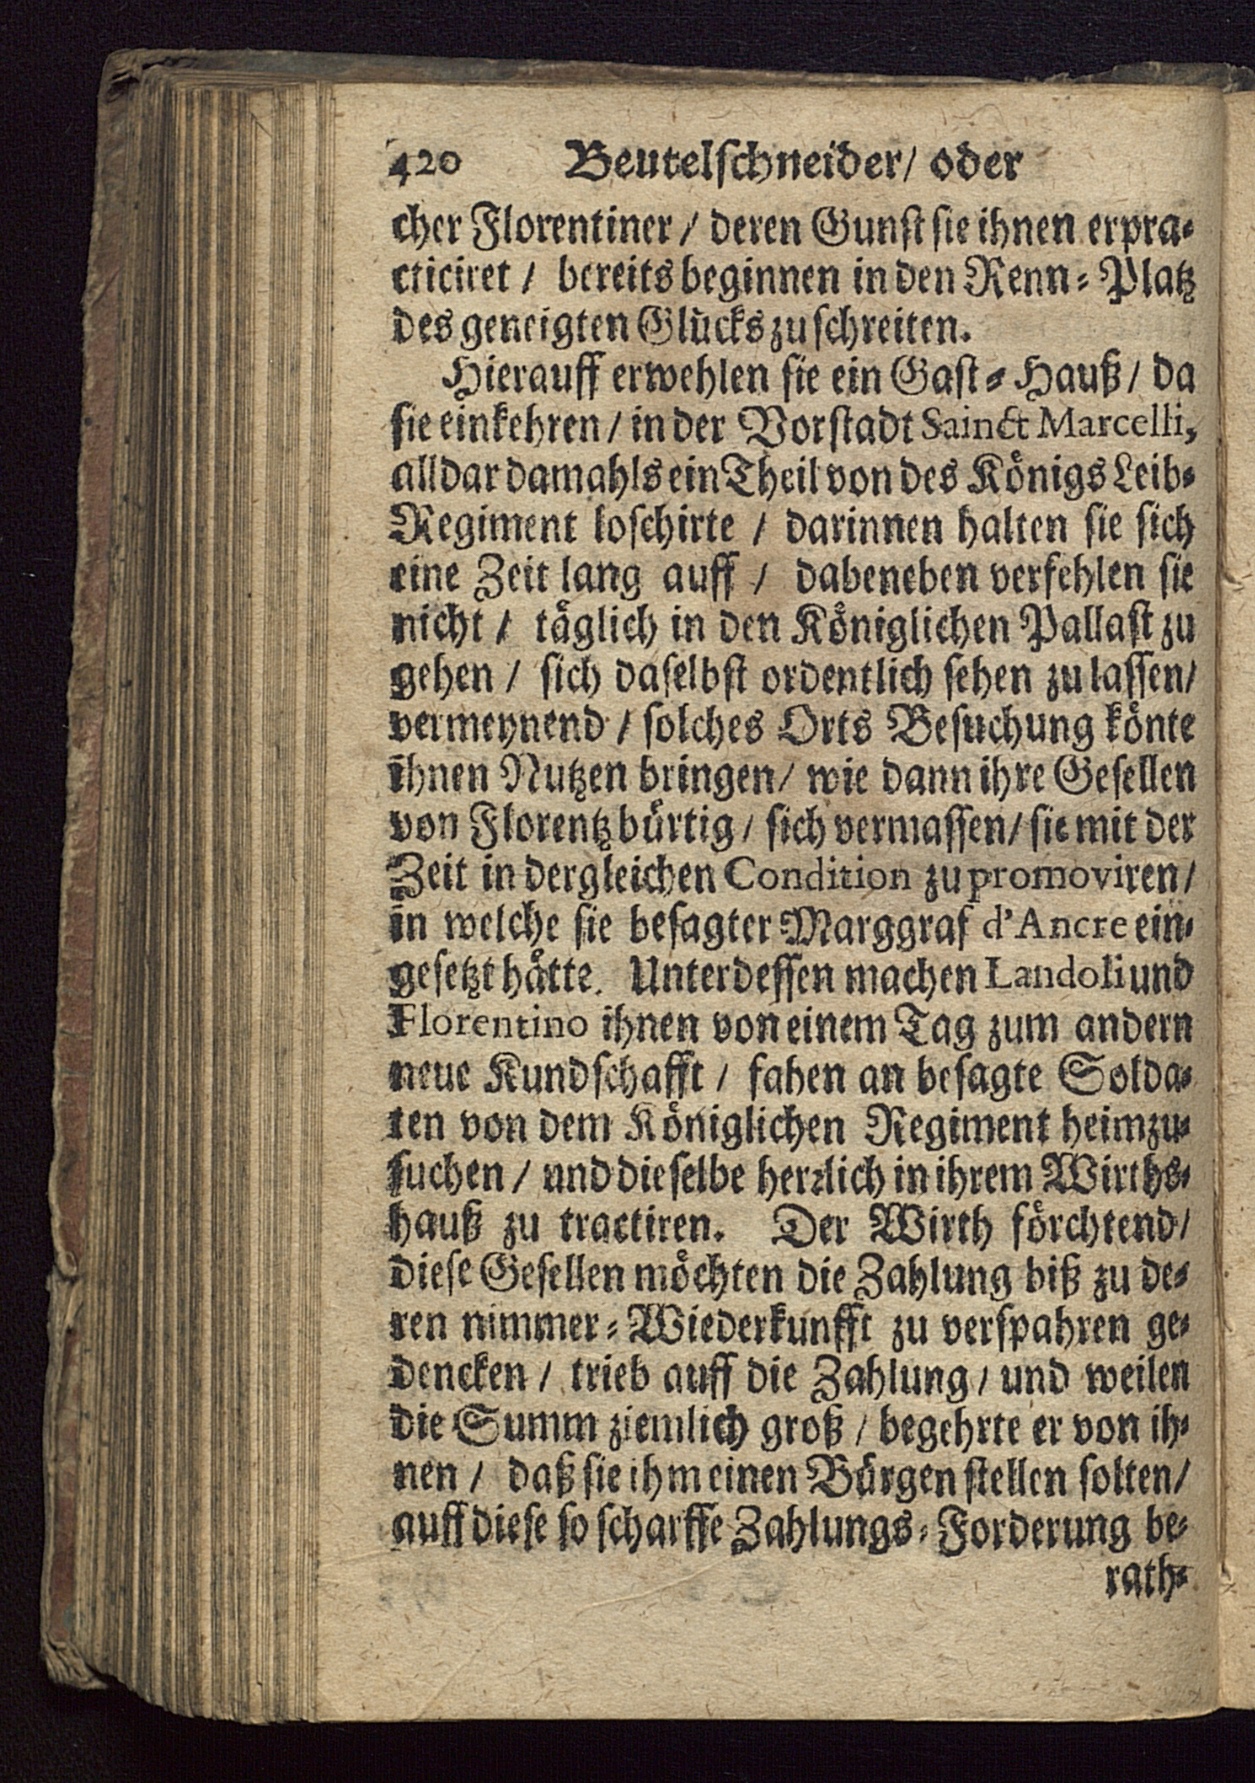 420 Beutelschneider / oder
cher Florentiner / deren Gunst sie ihnen erpra-
cticiret / bereits beginnen in den Renn-Platz
des geneigten Glücks zu schreiten.
Hierauff erwehlen sie ein Gast-Hauß / da
sie einkehren / in der Vorstadt Sainct Marcelli,
alldar damahls ein Theil von des Königs Leib-
Regiment loschirte / darinnen halten sie sich
eine Zeit lang auff / dabeneben verfehlen sie
nicht / täglich in den Königlichen Pallast zu
gehen / sich daselbst ordentlich sehen zu lassen /
vermeynend / solches Orts Besuchung könte
ihnen Nutzen bringen / wie dann ihre Gesellen
von Florentz bürtig / sich vermassen / sie mit der
Zeit in dergleichen Condition zu promoviren /
in welche sie besagter Marggraf d'Ancre ein-
gesetzt hätte. Unterdessen machen Landoli und
Florentino ihnen von einem Tag zum andern
neue Kundschafft / fahen an besagte Solda-
ten von dem Königlichen Regiment heimzu-
suchen / und dieselbe herzlich in ihrem Wirths-
hauß zu tractiren. Der Wirth förchtend /
diese Gesellen möchten die Zahlung biß zu de-
ren nimmer-Wiederkunfft zu verspahren ge-
dencken / trieb auff die Zahlung / und weilen
die Summ ziemlich groß / begehrte er von ih-
nen / daß sie ihm einen Bürgen stellen solten /
auff diese so scharffe Zahlungs-Forderung be-
rath-